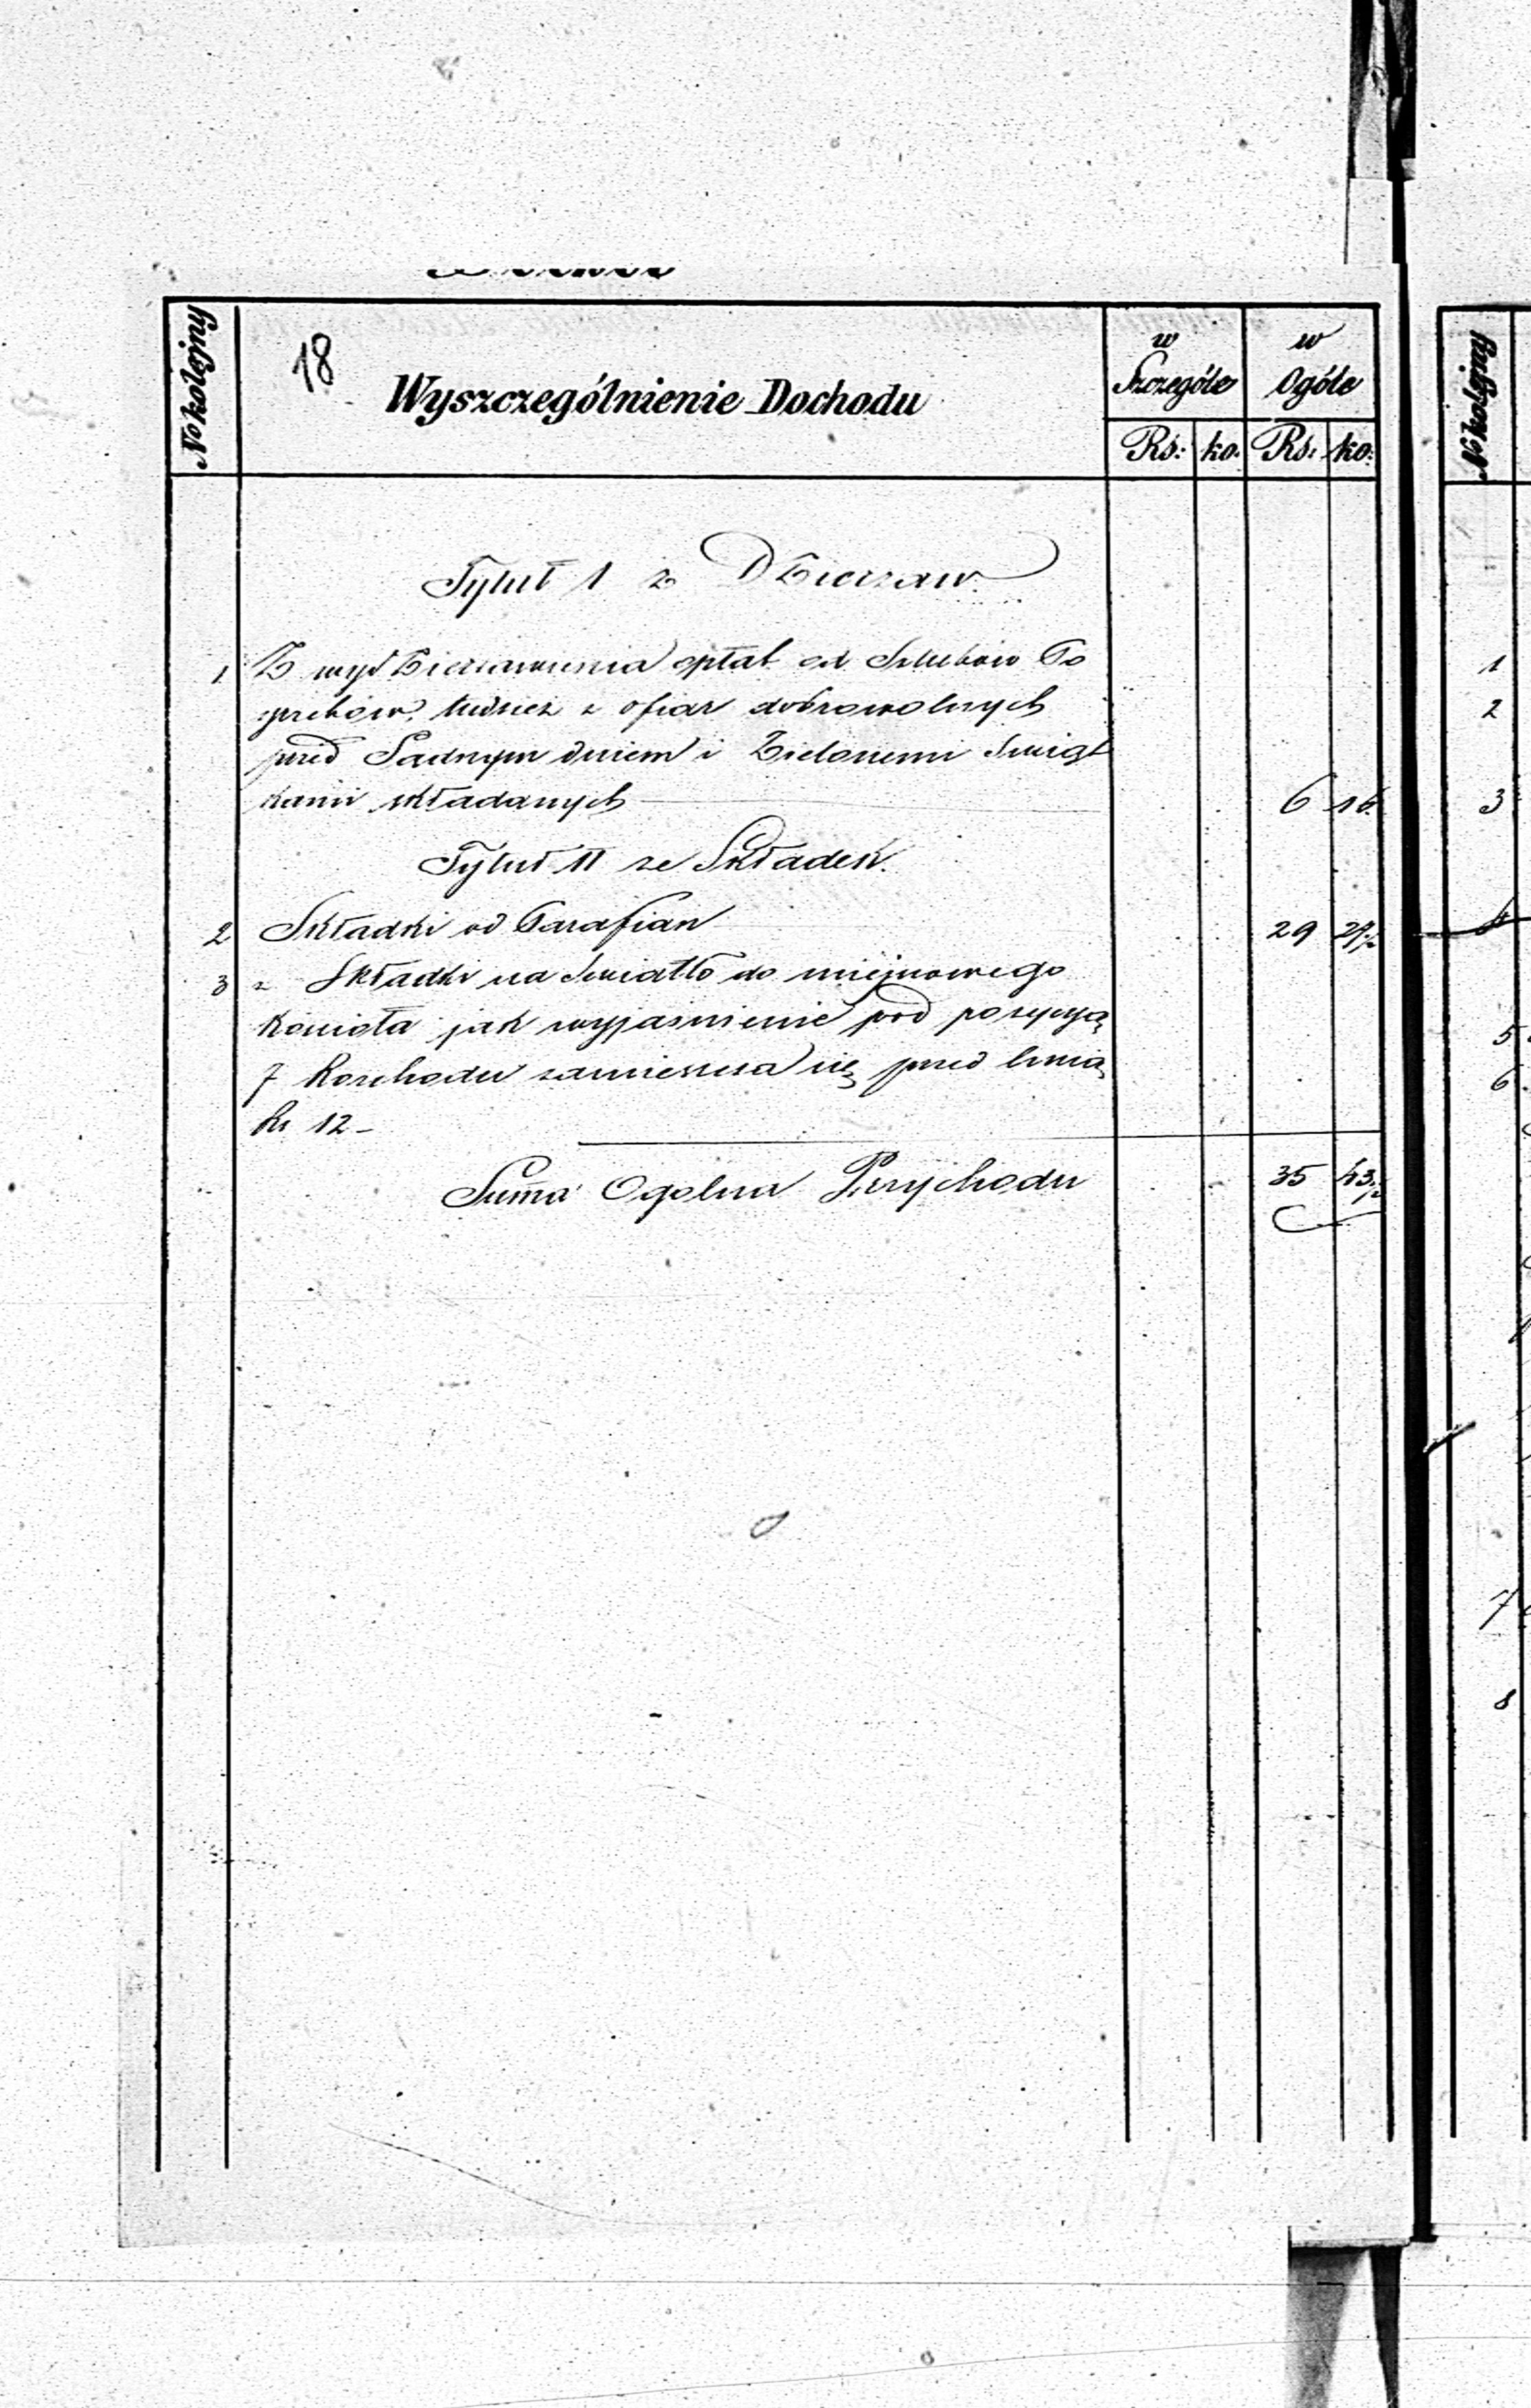 No kolejny
18
Wyszczególnienie Dochodu
w Szczególe
w Ogóle
Rs: ko. Rs: ko:
Tytuł 1 z Dzierzaw
1 Z wydzierzawienia opłat od Szlubów Po
grzebów, tudzież z ofiar dobrowolnych
przed Sadnym dniem i Zielonemi Swiąt
kami składanych 6 16
Tytuł II ze Składek.
2 Składki od Parafian 29 27 ½
3 z Składki na Swiatło do miejscowego
Kościoła jak wyjasnienie pod pozycyą
7 Rozchodu zamieszcza się przed linią
Rs 12 -
Suma Ogolna Przychodu 35 43 ½
No kolejny
1
2
3
5
6
7
8